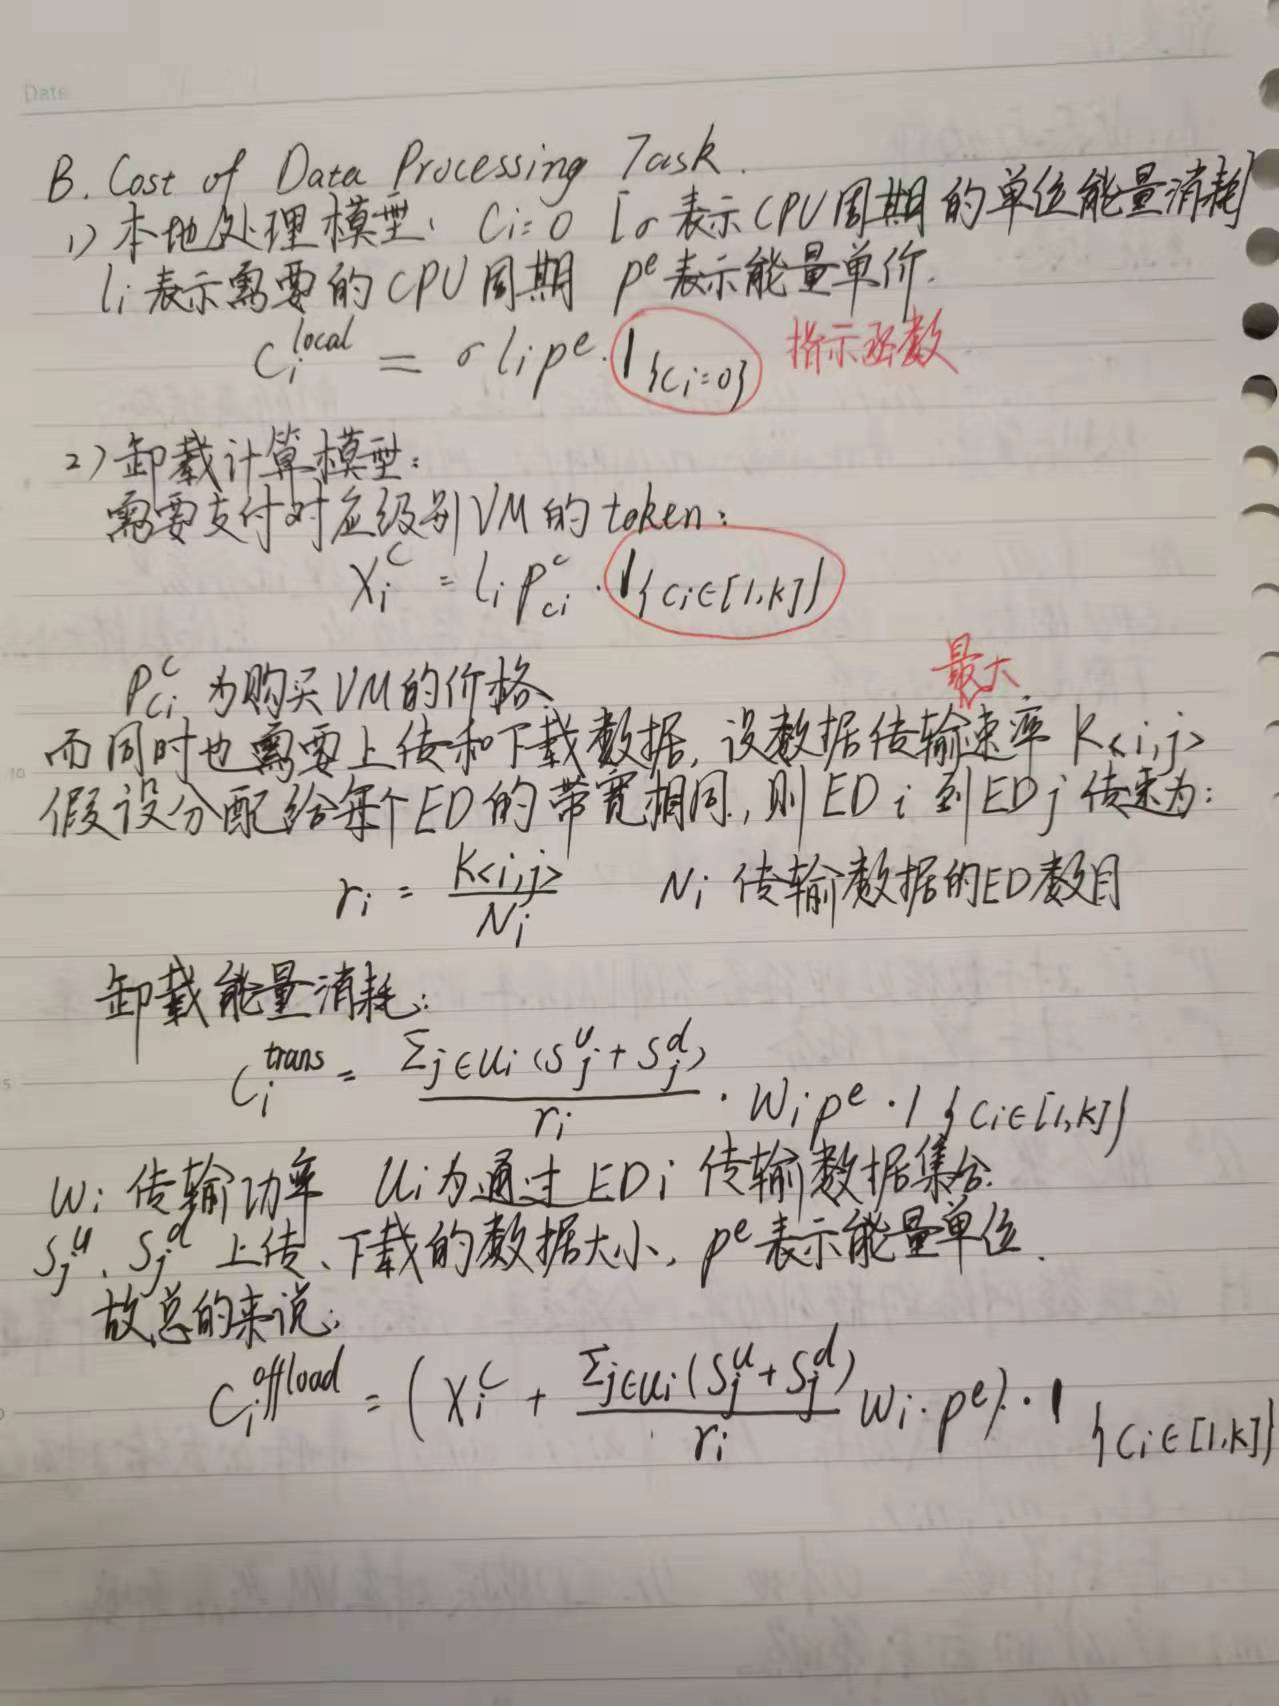 Date
B. Cost of Data Processing Task.
1) 本地处理模型: Ci=0 [σ表示CPU周期的单位能量消耗]
li 表示需要的CPU周期 p^e表示能量单价.
C_i^local = σ li p^e · 1{ci=0} 指示函数
2) 卸载计算模型:
需要支付对应级别VM的token:
X_i^c = li p_ci^c · 1{ci∈[1,k]}
P_ci^c 为购买VM的价格.
最大
而同时也需要上传和下载数据, 设数据传输速率 K<i,j>
假设分配给每个ED的带宽相同, 则 ED i 到 ED j 传速为:
ri = K<i,j> / Ni Ni 传输数据的ED数目
卸载能量消耗:
C_i^trans = Σj∈ui (S_j^u + S_j^d) / ri · Wi p^e · 1{ci∈[1,k]}
Wi 传输功率 Ui为通过EDi传输数据集合.
S_j^u、S_j^d 上传、下载的数据大小, p^e表示能量单位.
故总的来说:
C_i^offload = (X_i^c + Σj∈ui (S_j^u + S_j^d) / ri Wi · p^e) · 1{ci∈[1,k]}